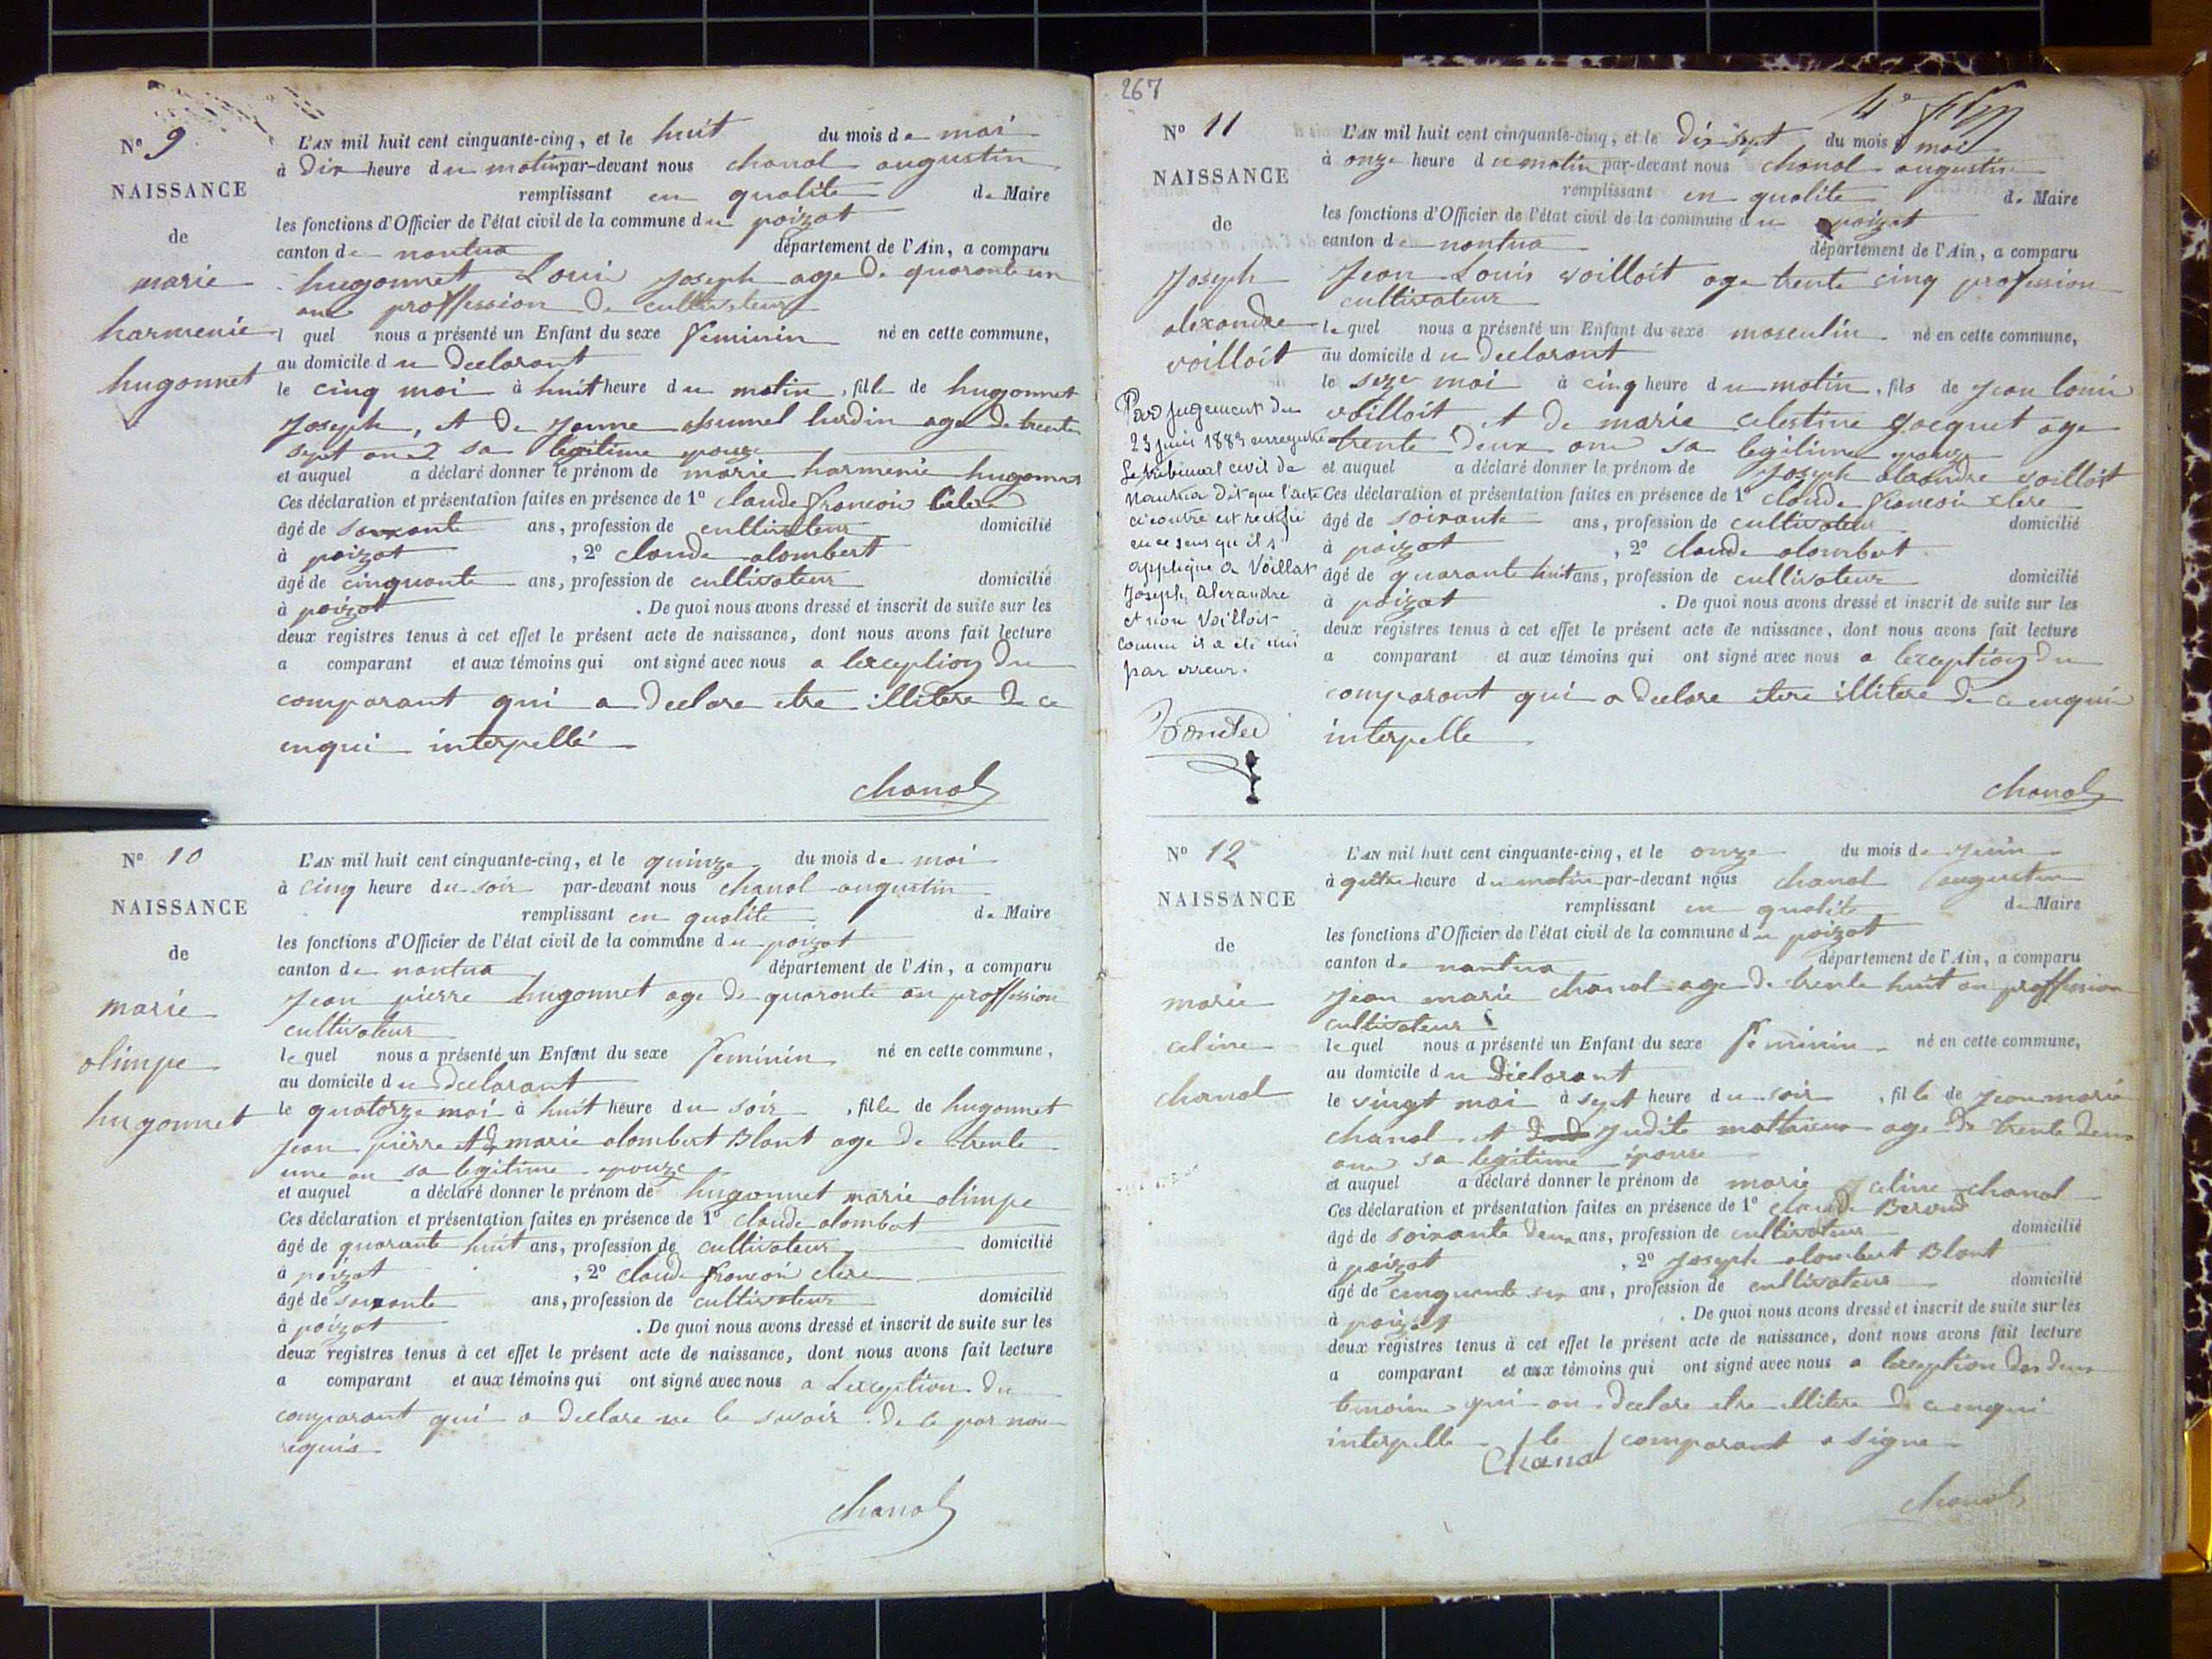 N° 9
NAISSANCE
de
marie
harmenie
hugonnet
L'AN mil huit cent cinquante-cinq, et le huit du mois de mai
à dix heure du matin par-devant nous chanal augustin
remplissant en qualite de Maire
les fonctions d'Officier de l'état civil de la commune du poizat
canton de nantua département de l'Ain, a comparu
hugonnet Loui Joseph age de quarante un
ans proffession de cultivateur
l quel nous a présenté un Enfant du sexe feminin né en cette commune,
au domicile du declarant
le cinq mai à huit heure du matin, fille de hugonnet
Joseph, et de Jeanne age de trente
sept ans sa legitime epouze
et auquel a déclaré donner le prénom de marie harmenie hugonnet
Ces déclaration et présentation faites en présence de 1° claude francoi clere
âgé de soixante ans, profession de cultivateur domicilié
à poizat , 2° claude alombert
âgé de cinquante ans, profession de cultivateur domicilié
à poizat . De quoi nous avons dressé et inscrit de suite sur les
deux registres tenus à cet effet le présent acte de naissance, dont nous avons fait lecture
a comparant et aux témoins qui ont signé avec nous a lexception du
comparant qui a declare etre illitere de ce
enqui interpellé
chanal
N° 10
NAISSANCE
de
marie
olimpe
hugonnet
L'AN mil huit cent cinquante-cinq, et le quinze du mois de mai
à cinq heure du soir par-devant nous chanal augustin
remplissant en qualite de Maire
les fonctions d'Officier de l'état civil de la commune du poizat
canton de nantua département de l'Ain, a comparu
Jean pierre hugonnet age de quarante an proffession
cultivateur
le quel nous a présenté un Enfant du sexe feminin né en cette commune,
au domicile du declarant
le quatorze mai à huit heure du soir , fille de hugonnet
jean pierre et de marie alombert Blant age de trente
une an sa legitime epouze
et auquel a déclaré donner le prénom de hugonnet marie olimpe
Ces déclaration et présentation faites en présence de 1° claude alombert
âgé de quarante huit ans, profession de cultivateur domicilié
à poizat , 2° claude francoi clere
âgé de soixante ans, profession de cultivateur domicilié
à poizat . De quoi nous avons dressé et inscrit de suite sur les
deux registres tenus à cet effet le présent acte de naissance, dont nous avons fait lecture
a comparant et aux témoins qui ont signé avec nous a Lexception du
comparant qui a declare ne le savoir de ce par nou
requis
chanal
267
4e
N° 11
NAISSANCE
de
Joseph
alexandre
voilloit
Par jugement du
23 juin 1883 enregistré
Le tribunal civil de
Nantua dit que l'acte
ci contre est rectifié
en ce sens qu'il s
applique a Voillat
Joseph Alexandre
et non Voilloit
comme il a été mis
par erreur.
L'AN mil huit cent cinquante-cinq, et le dix sept du mois d mai
à onze heure du matin par-devant nous chanal augustin
remplissant en qualite de Maire
les fonctions d'Officier de l'état civil de la commune du poizat
canton de nantua département de l'Ain, a comparu
Jean Louis voilloit age trente cinq profession
cultivateur
le quel nous a présenté un Enfant du sexe masculin né en cette commune,
au domicile du declarant
le seze mai à cinq heure du matin, fils de Jean loui
voilloit et de marie celestine Jacquet age
trente deux ans sa legitime epouze
et auquel a déclaré donner le prénom de Joseph alexandre voilloit
Ces déclaration et présentation faites en présence de 1° claude francoi clere
âgé de soixante ans, profession de cultivateur domicilié
à poizat , 2° claude alombert
âgé de quarante huit ans, profession de cultivateur domicilié
à poizat . De quoi nous avons dressé et inscrit de suite sur les
deux registres tenus à cet effet le présent acte de naissance, dont nous avons fait lecture
a comparant et aux témoins qui ont signé avec nous a lexception du
comparant qui a declare etere illitere de ce enqui
interpelle
chanal
N° 12
NAISSANCE
de
marie
celine
chanal
L'AN mil huit cent cinquante-cinq, et le onze du mois de Juin
à heure du matin par-devant nous chanal augustin
remplissant en qualite de Maire
les fonctions d'Officier de l'état civil de la commune du poizat
canton de nantua département de l'Ain, a comparu
Jean marie chanal age de trente huit an proffession
cultivateur
le quel nous a présenté un Enfant du sexe feminin né en cette commune,
au domicile du declarant
le vingt mai à sept heure du soir , fille de Jean marie
chanal et Judite mathieu age de trente deux
ans sa legitime epouse
et auquel a déclaré donner le prénom de marie celine chanal
Ces déclaration et présentation faites en présence de 1° claude Beroud
âgé de soixante deux ans, profession de cultivateur domicilié
à poizat , 2° Joseph alombert Blant
âgé de cinquante six ans, profession de cultivateur domicilié
à poizat . De quoi nous avons dressé et inscrit de suite sur les
deux registres tenus à cet effet le présent acte de naissance, dont nous avons fait lecture
a comparant et aux témoins qui ont signé avec nous a lexception des deux
temoins qui on declare etre illitere de ce enqui
interpelle le comparant a signe
Chanal
chanal